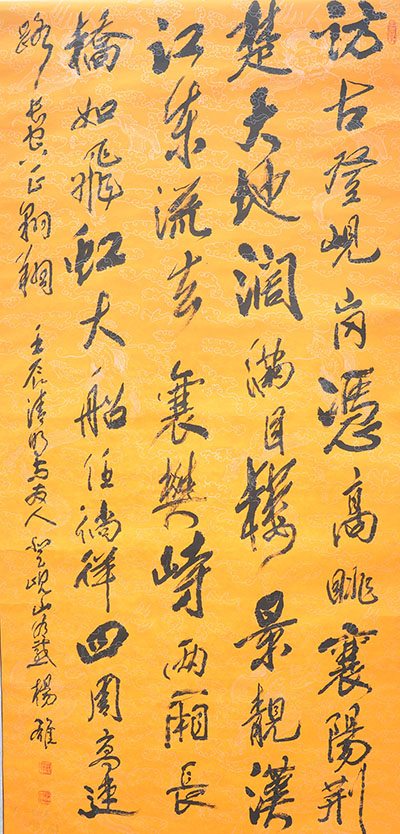 訪古登峴岗憑高眺襄陽荆
楚天地阔滿目樓景靚漢
江東流去襄樊峙两廂長
橋如飛虹大船任徜徉四周高速
路長空正翱翔 壬辰清明与友人登峴山有感 楊雄